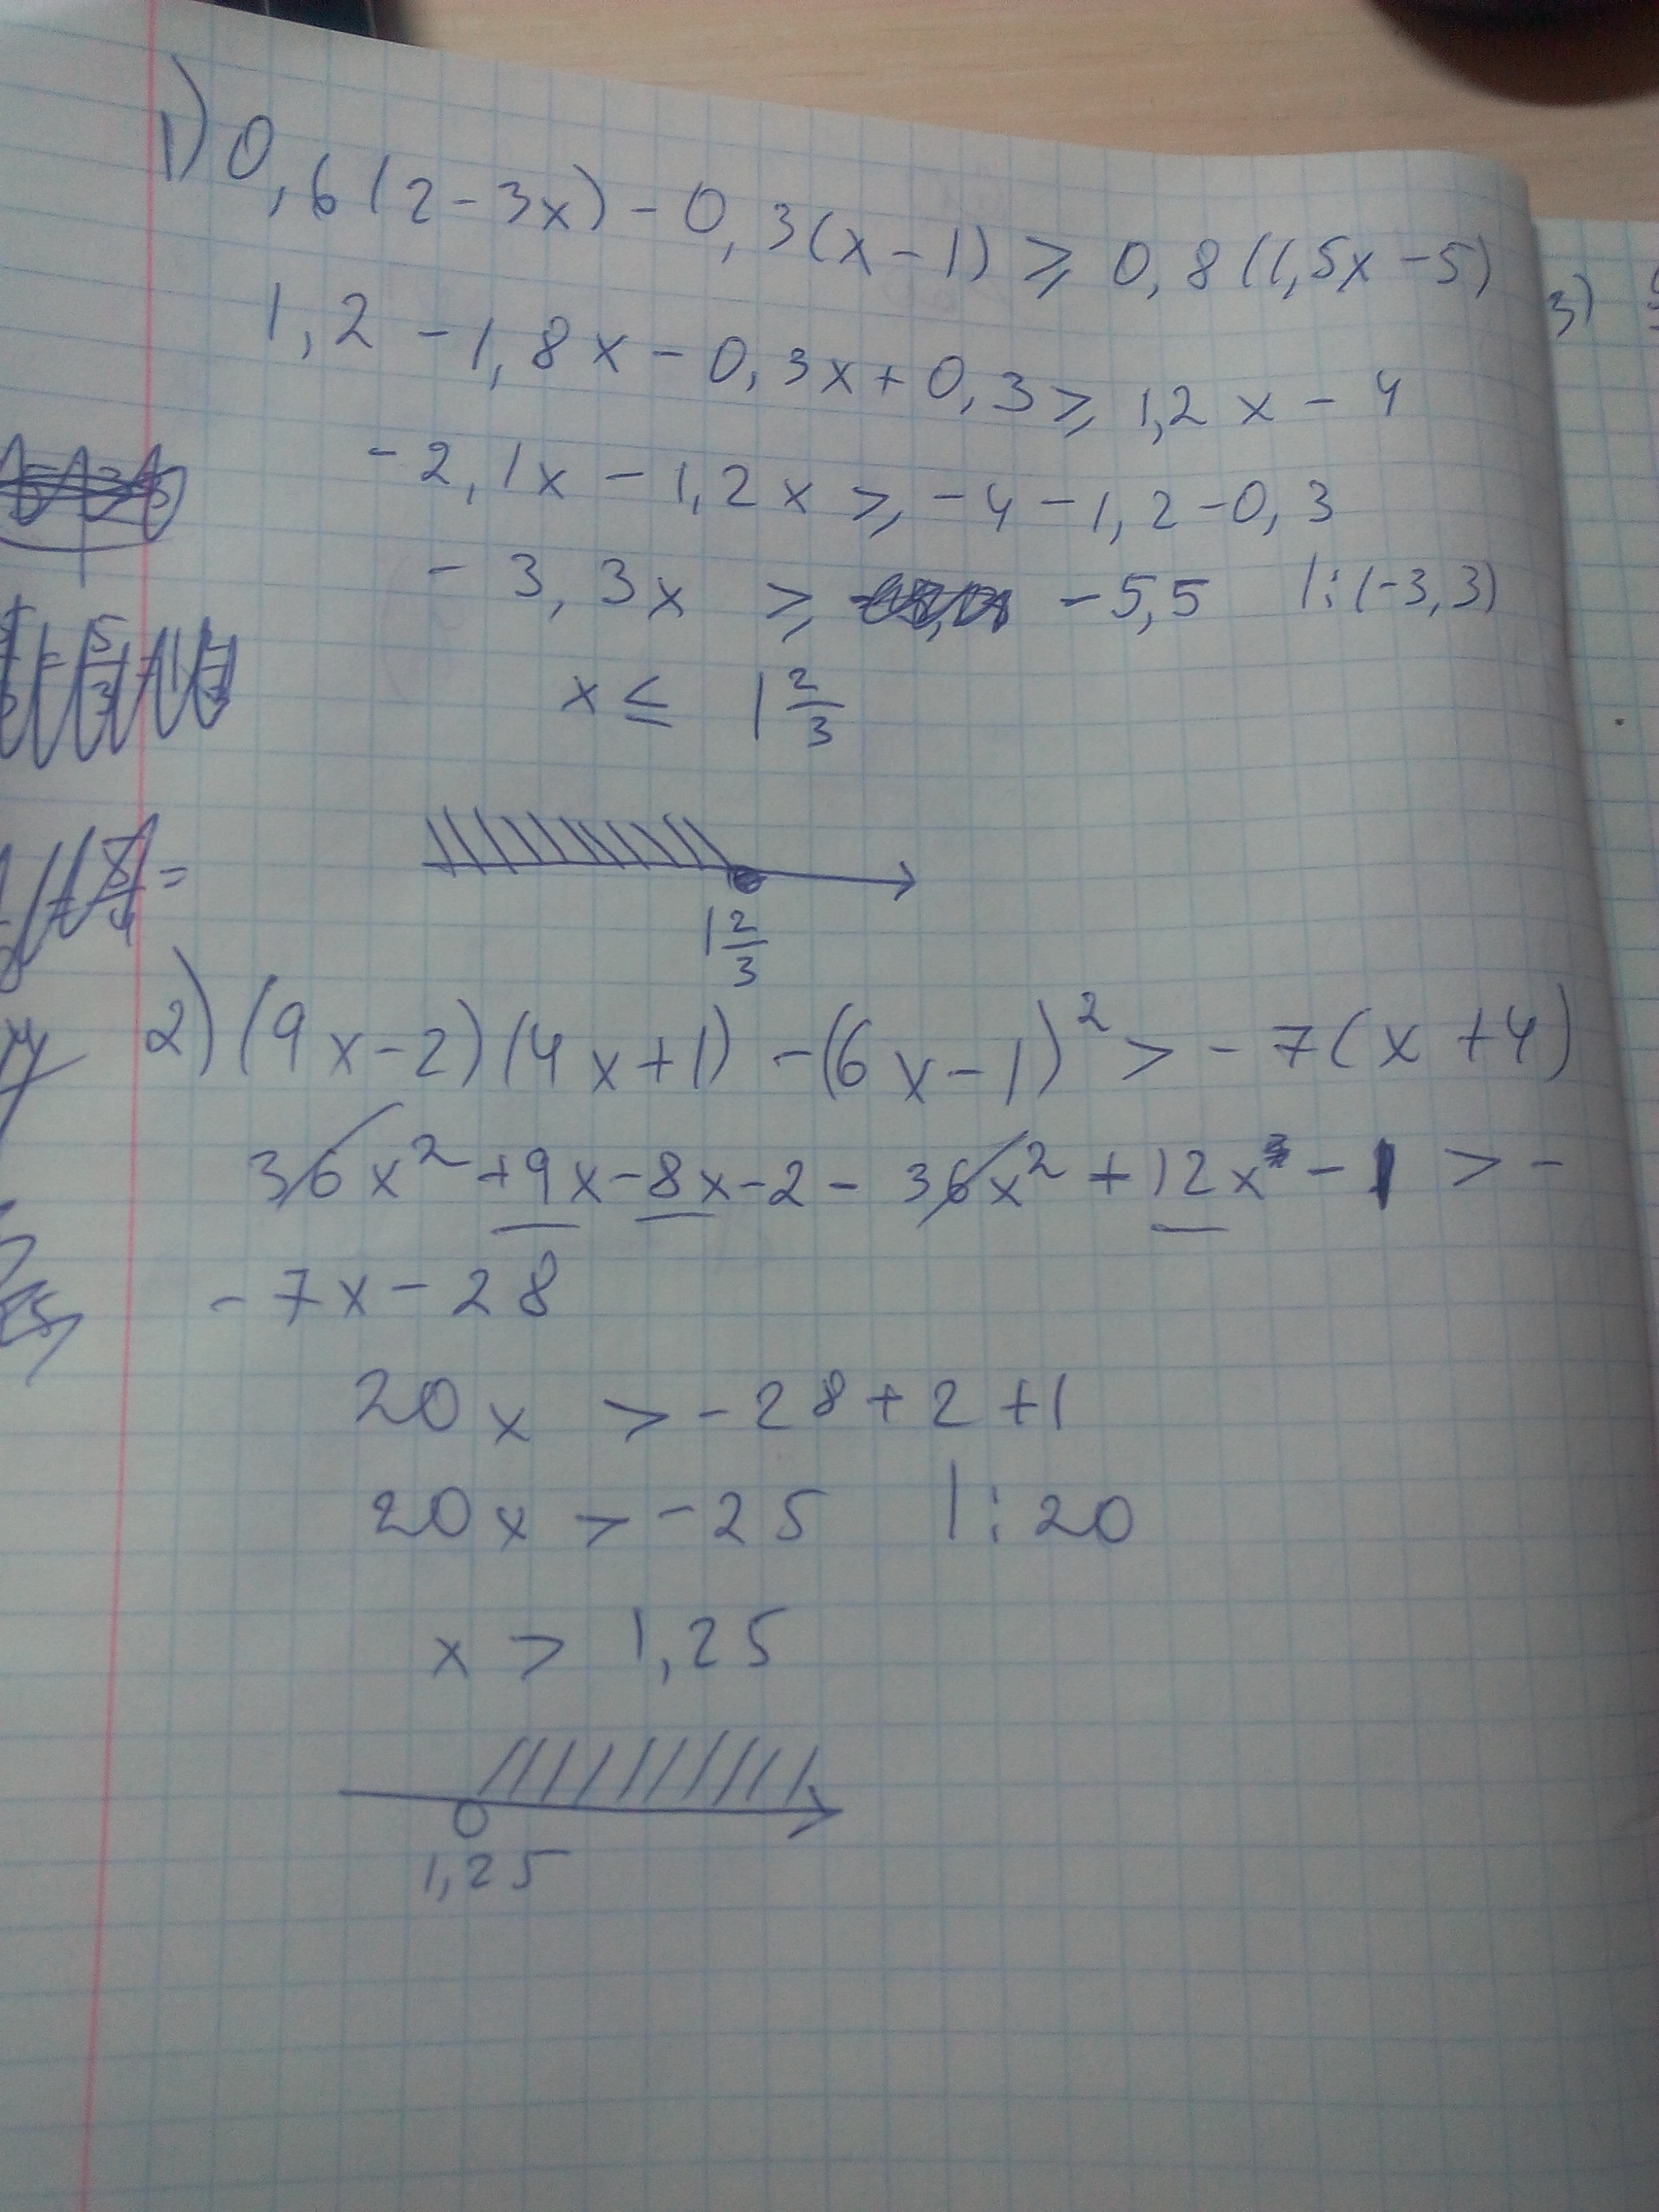 1) 0,6(2-3x)-0,3(x-1)⩾0,8(1,5x-5)
1,2-1,8x-0,3x+0,3⩾1,2x-4
-2,1x-1,2x⩾-4-1,2-0,3
-3,3x ⩾ -5,5 |:(-3,3)
x ≤ 1 2/3
1 2/3
2) (9x-2)(4x+1)-(6x-1)²>-7(x+4)
36x²+9x-8x-2-36x²+12x-1>-
-7x-28
20x >-28+2+1
20x >-25 |:20
x > 1,25
1,25
3)